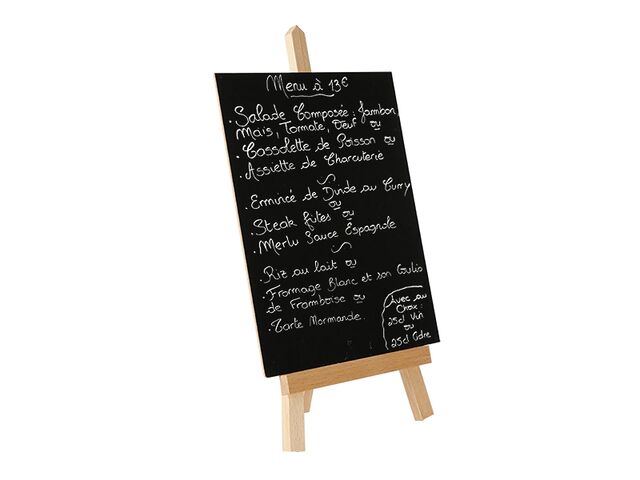 Menu à 13€
• Salade Composée : Jambon,
Maïs, Tomate, Oeuf ou
• Cassolette de Poisson ou
• Assiette de Charcuterie
• Emincé de Dinde au Curry
ou
• Steak frites ou
• Merlu Sauce Espagnole
• Riz au lait ou
• Fromage Blanc et son Coulis
de Framboise ou
• Tarte Normande.
Avec au
Choix :
25cl Vin
ou
25cl Cidre